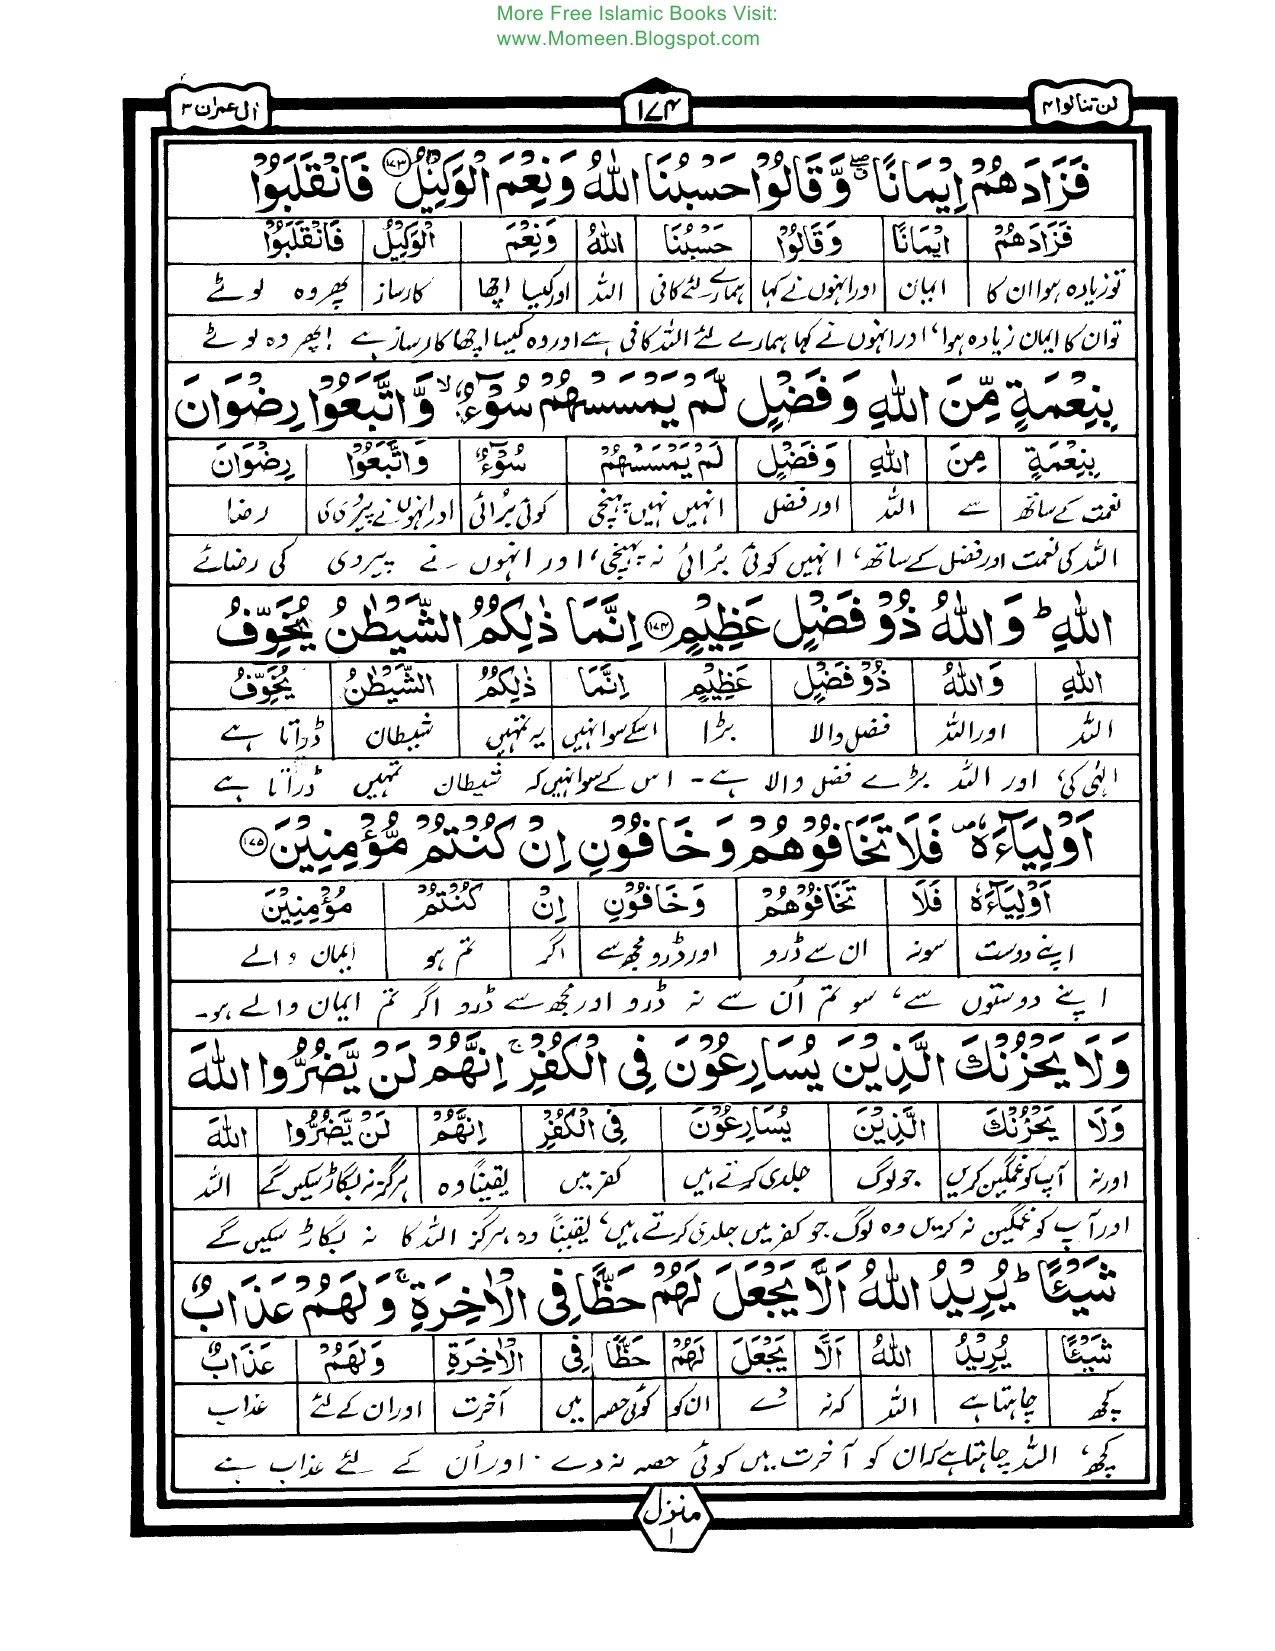 More Free Islamic Books Visit:
www.Momeen.Blogspot.com
لن تنالوا ۴
۱۷۴
اٰل عمران ۳
فَزَادَهُمْ اِيْمَانًا ۖ وَّقَالُوْا حَسْبُنَا اللّٰهُ وَنِعْمَ الْوَكِيْلُ ﴿۱۷۳﴾ فَانْقَلَبُوْا
فَزَادَهُمْ اِيْمَانًا وَّقَالُوْا حَسْبُنَا اللّٰهُ وَنِعْمَ الْوَكِيْلُ فَانْقَلَبُوْا
تو زیادہ ہوا ان کا ایمان اور انہوں نے کہا ہمارے لئے کافی اللہ اور کیسا اچھا کارساز پھر وہ لوٹے
تو ان کا ایمان زیادہ ہوا، اور انہوں نے کہا ہمارے لئے اللہ کافی ہے اور وہ کیسا اچھا کارساز ہے ! پھر وہ لوٹے
بِنِعْمَةٍ مِّنَ اللّٰهِ وَفَضْلٍ لَّمْ يَمْسَسْهُمْ سُوْٓءٌ ۙ وَّاتَّبَعُوْا رِضْوَانَ
بِنِعْمَةٍ مِنَ اللّٰهِ وَفَضْلٍ لَمْ يَمْسَسْهُمْ سُوْٓءٌ وَّاتَّبَعُوْا رِضْوَانَ
نعمت کے ساتھ سے اللہ اور فضل انہیں نہیں پہنچی کوئی برائی اور انہوں نے پیروی کی رضا
اللہ کی نعمت اور فضل کے ساتھ، انہیں کوئی بُرائی نہ پہنچی، اور انہوں نے پیروی کی رضائے
اللّٰهِ ؕ وَاللّٰهُ ذُوْ فَضْلٍ عَظِيْمٍ ﴿۱۷۴﴾ اِنَّمَا ذٰلِكُمُ الشَّيْطٰنُ يُخَوِّفُ
اللّٰهِ وَاللّٰهُ ذُوْ فَضْلٍ عَظِيْمٍ اِنَّمَا ذٰلِكُمُ الشَّيْطٰنُ يُخَوِّفُ
اللہ اور اللہ فضل والا بڑا اسکے سوا نہیں یہ تمہیں شیطان ڈراتا ہے
الٰہی کی، اور اللہ بڑے فضل والا ہے۔ اس کے سوا نہیں کہ شیطان تمہیں ڈراتا ہے
اَوْلِيَآءَهٗ ۪ فَلَا تَخَافُوْهُمْ وَخَافُوْنِ اِنْ كُنْتُمْ مُّؤْمِنِيْنَ ﴿۱۷۵﴾
اَوْلِيَآءَهٗ فَلَا تَخَافُوْهُمْ وَخَافُوْنِ اِنْ كُنْتُمْ مُؤْمِنِيْنَ
اپنے دوست سو نہ ان سے ڈرو اور ڈرو مجھ سے اگر تم ہو ایمان والے
اپنے دوستوں سے، سو تم اُن سے نہ ڈرو اور مجھ سے ڈرو اگر تم ایمان والے ہو۔
وَلَا يَحْزُنْكَ الَّذِيْنَ يُسَارِعُوْنَ فِى الْكُفْرِ ۚ اِنَّهُمْ لَنْ يَّضُرُّوا اللّٰهَ
وَلَا يَحْزُنْكَ الَّذِيْنَ يُسَارِعُوْنَ فِى الْكُفْرِ اِنَّهُمْ لَنْ يَّضُرُّوا اللّٰهَ
اور نہ آپ کو غمگین کریں جو لوگ جلدی کرتے ہیں کفر میں یقیناً وہ ہرگز نہ بگاڑ سکیں گے اللہ
اور آپ کو غمگین نہ کریں وہ لوگ جو کفر میں جلدی کرتے ہیں، یقیناً وہ ہرگز اللہ کا نہ بگاڑ سکیں گے
شَيْئًا ؕ يُرِيْدُ اللّٰهُ اَلَّا يَجْعَلَ لَهُمْ حَظًّا فِى الْاٰخِرَةِ ۚ وَلَهُمْ عَذَابٌ
شَيْئًا يُرِيْدُ اللّٰهُ اَلَّا يَجْعَلَ لَهُمْ حَظًّا فِى الْاٰخِرَةِ وَلَهُمْ عَذَابٌ
کچھ چاہتا ہے اللہ کہ نہ دے ان کو کوئی حصہ میں آخرت اور ان کے لئے عذاب
کچھ، اللہ چاہتا ہے کہ ان کو آخرت میں کوئی حصہ نہ دے۔ اور اُن کے لئے عذاب ہے
منزل ۱